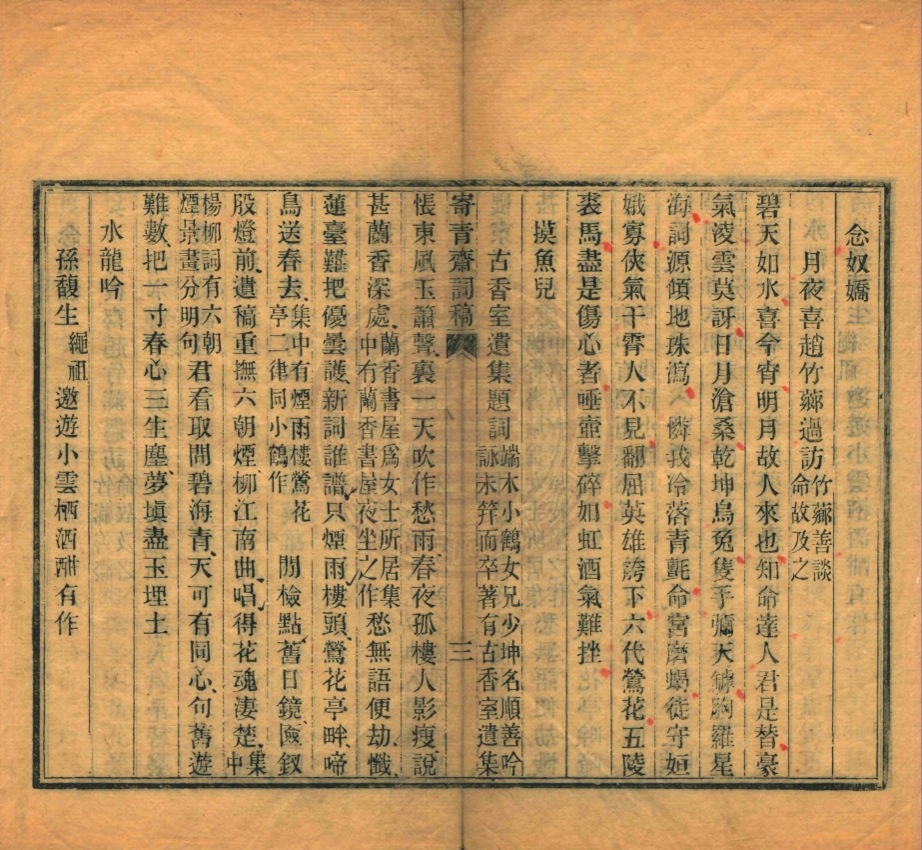 念奴嬌
月夜喜趙竹薌過訪竹薌善談命故及之
碧天如水喜今宵明月故人來也知命達人君是替豪
氣淩雲莫訝日月滄桑乾坤烏兔隻手彌天罅胸羅星
海詞源傾地珠瀉 憐我冷落青氈命宮磨蝎徒守姮
娥寡俠氣干霄人不見翻屈英雄誇下六代鶯花五陵
裘馬盡是傷心者唾壺擊碎如虹酒氣難挫
摸魚兒
古香室遺集題詞端木小鶴女兄少坤名順善吟詠未筓而卒著有古香室遺集
寄青齋詞稿 三
悵東風玉簫聲裏一天吹作愁雨春夜孤樓人影瘦說
甚蘭香深處蘭香書屋為女士所居集中有蘭香書屋夜坐之作愁無語便劫懺
蓮臺難把優曇護新詞誰譜只煙雨樓頭鶯花亭畔啼
鳥送春去集中有煙雨樓鶯花亭二律同小鶴作 閒檢點舊日鏡匳釵
股燈前遺稿重撫六朝煙柳江南曲唱得花魂淒楚集中
楊柳詞有六朝煙景畫分明句君看取問碧海青天可有同心句舊遊
難數把一寸春心三生塵夢塡盡玉埋土
水龍吟
孫馥生繩祖邀遊小雲栖酒酣有作